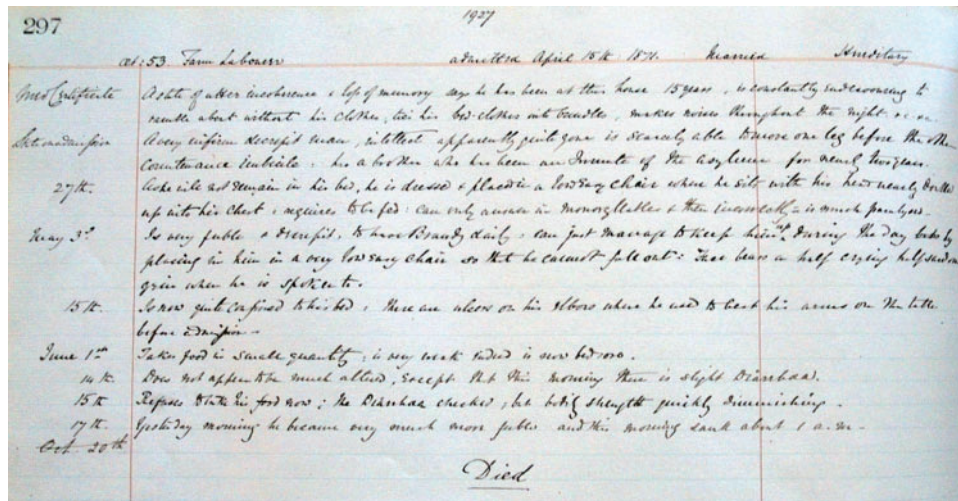 1927
297
æt: 53. Farm Labourer admitted April 15th 1871. Married Hereditary
Med Certificate A state of utter incoherence & loss of memory says he has been at this house 15 years, is constantly endeavouring to
ramble about without his clothes, ties his bed-clothes into bundles, makes noises throughout the night
State on admission A very infirm decrepit man, intellect apparently quite gone is scarcely able to move one leg before the other
Countenance imbecile, has a brother who has been an Inmate of the Asylum for nearly two years.
27th. As he will not remain in his bed, he is dressed & placed in a low easy chair where he sits with his head nearly doubled
up into his Chest; requires to be fed: can only answer in monosyllables & then incorrectly – is much paralysed.
May 3rd Is very feeble & decrepit, to have Brandy daily; can just manage to keep him up during the day by
placing him in a very low easy chair so that he cannot fall out: Face bears a half crying half
grin when he is spoken to.
15th. Is now quite confined to his bed; there are ulcers on his elbows where he used to beat his arms on the table
before admission –
June 1st Takes food in small quantity; is very weak indeed is now bedsore.
14th. Does not appear to be much altered, except that this morning there is slight Diarrhœa.
15th Refuses to take his food now; the Diarrhœa checked, but bodily strength quickly diminishing.
17th. Yesterday morning he became very much more feeble and this morning sank about 1 a.m. –
Oct. 20th
Died